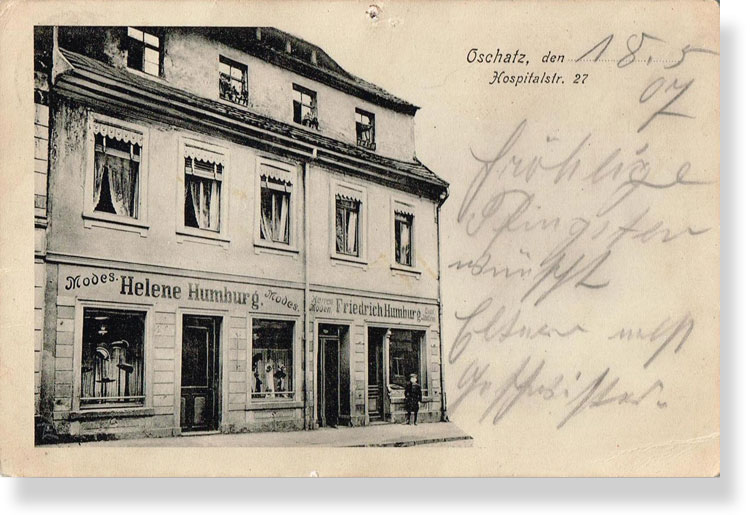 Oschatz, den 18.5.
Hospitalstr. 27
07
fröhliche
Pfingsten
wünscht
Eltern nebst
Geschwister.
Modes. Helene Humburg. Modes.
Herren Moden. Friedrich Humburg.